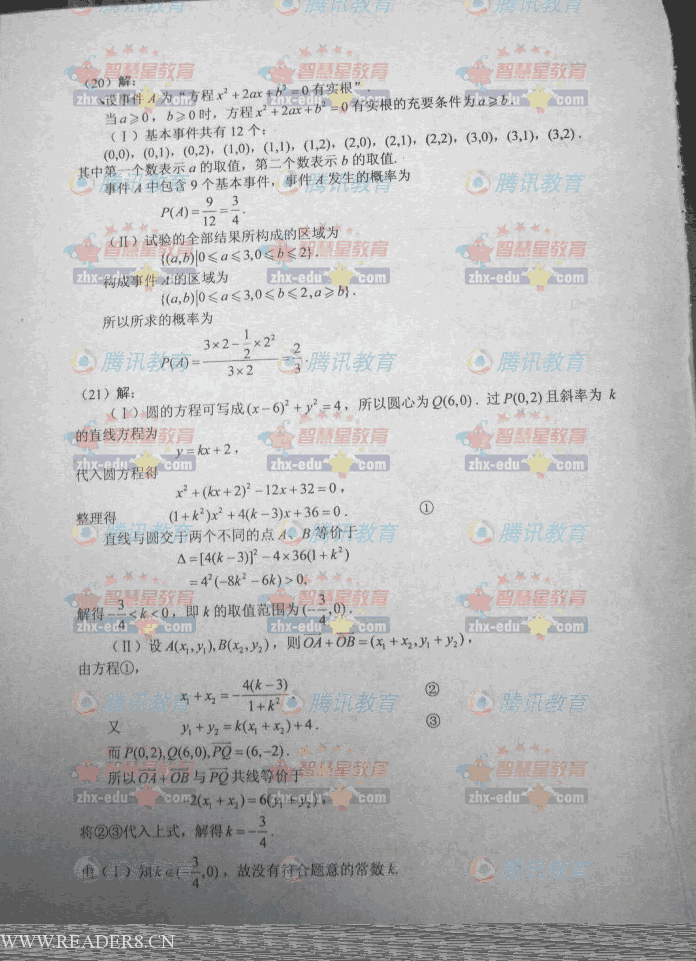 (20)解：
设事件A为“方程x²+2ax+b²=0有实根”.
当a⩾0，b⩾0时，方程x²+2ax+b²=0有实根的充要条件为a⩾b.
(Ⅰ)基本事件共有12个：
(0,0)，(0,1)，(0,2)，(1,0)，(1,1)，(1,2)，(2,0)，(2,1)，(2,2)，(3,0)，(3,1)，(3,2)．
其中第一个数表示a的取值，第二个数表示b的取值．
事件A中包含9个基本事件，事件A发生的概率为
P(A)=9/12=3/4.
(Ⅱ)试验的全部结果所构成的区域为
{(a,b)|0⩽a⩽3,0⩽b⩽2}．
构成事件A的区域为
{(a,b)|0⩽a⩽3,0⩽b⩽2,a⩾b}．
所以所求的概率为
P(A)=(3×2−1/2×2²)/(3×2)=2/3.
(21)解：
(Ⅰ)圆的方程可写成(x−6)²+y²=4，所以圆心为Q(6,0)．过P(0,2)且斜率为 k
的直线方程为
y=kx+2，
代入圆方程得
x²+(kx+2)²−12x+32=0，
整理得 (1+k²)x²+4(k−3)x+36=0． ①
直线与圆交于两个不同的点A、B等价于
Δ=[4(k−3)]²−4×36(1+k²)
=4²(−8k²−6k)>0,
解得−3/4<k<0，即k的取值范围为(−3/4,0)．
(Ⅱ)设A(x₁,y₁),B(x₂,y₂)，则OA+OB=(x₁+x₂,y₁+y₂)，
由方程①，
x₁+x₂=−4(k−3)/(1+k²) ②
又 y₁+y₂=k(x₁+x₂)+4． ③
而P(0,2),Q(6,0),PQ=(6,−2)．
所以OA+OB与PQ共线等价于
−2(x₁+x₂)=6(y₁+y₂)，
将②③代入上式，解得k=−3/4．
由(Ⅰ)知k∈(−3/4,0)，故没有符合题意的常数k.
智慧星教育
zhx-edu.com
腾讯教育
WWW.READER8.CN